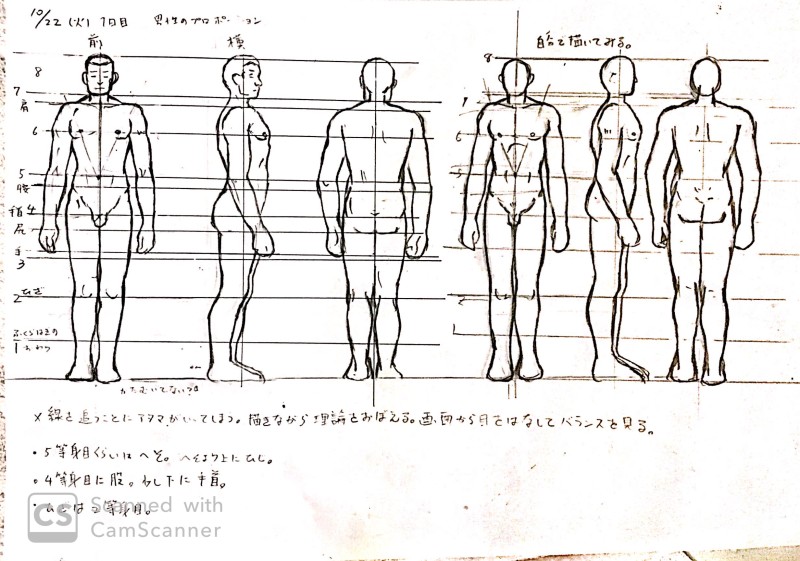 10/22 (火) 1日目 男性のプロポーション
前 横
自分で描いてみる。
8
8
7
7
肩
6
6
5
5
腰
4
尻
手
3
2 ひざ
2
ふくらはぎの
1
1
かたむいてない?
× 線を追うことにアタマがいってしまう。描きながら理論をおぼえる。画面から目をはなしてバランスを見る。
・5等身目くらいはヘそ。へそより上にひじ。
・4等身目に股。少し下に手首。
・ひざは2等身目。
CS Scanned with
CamScanner